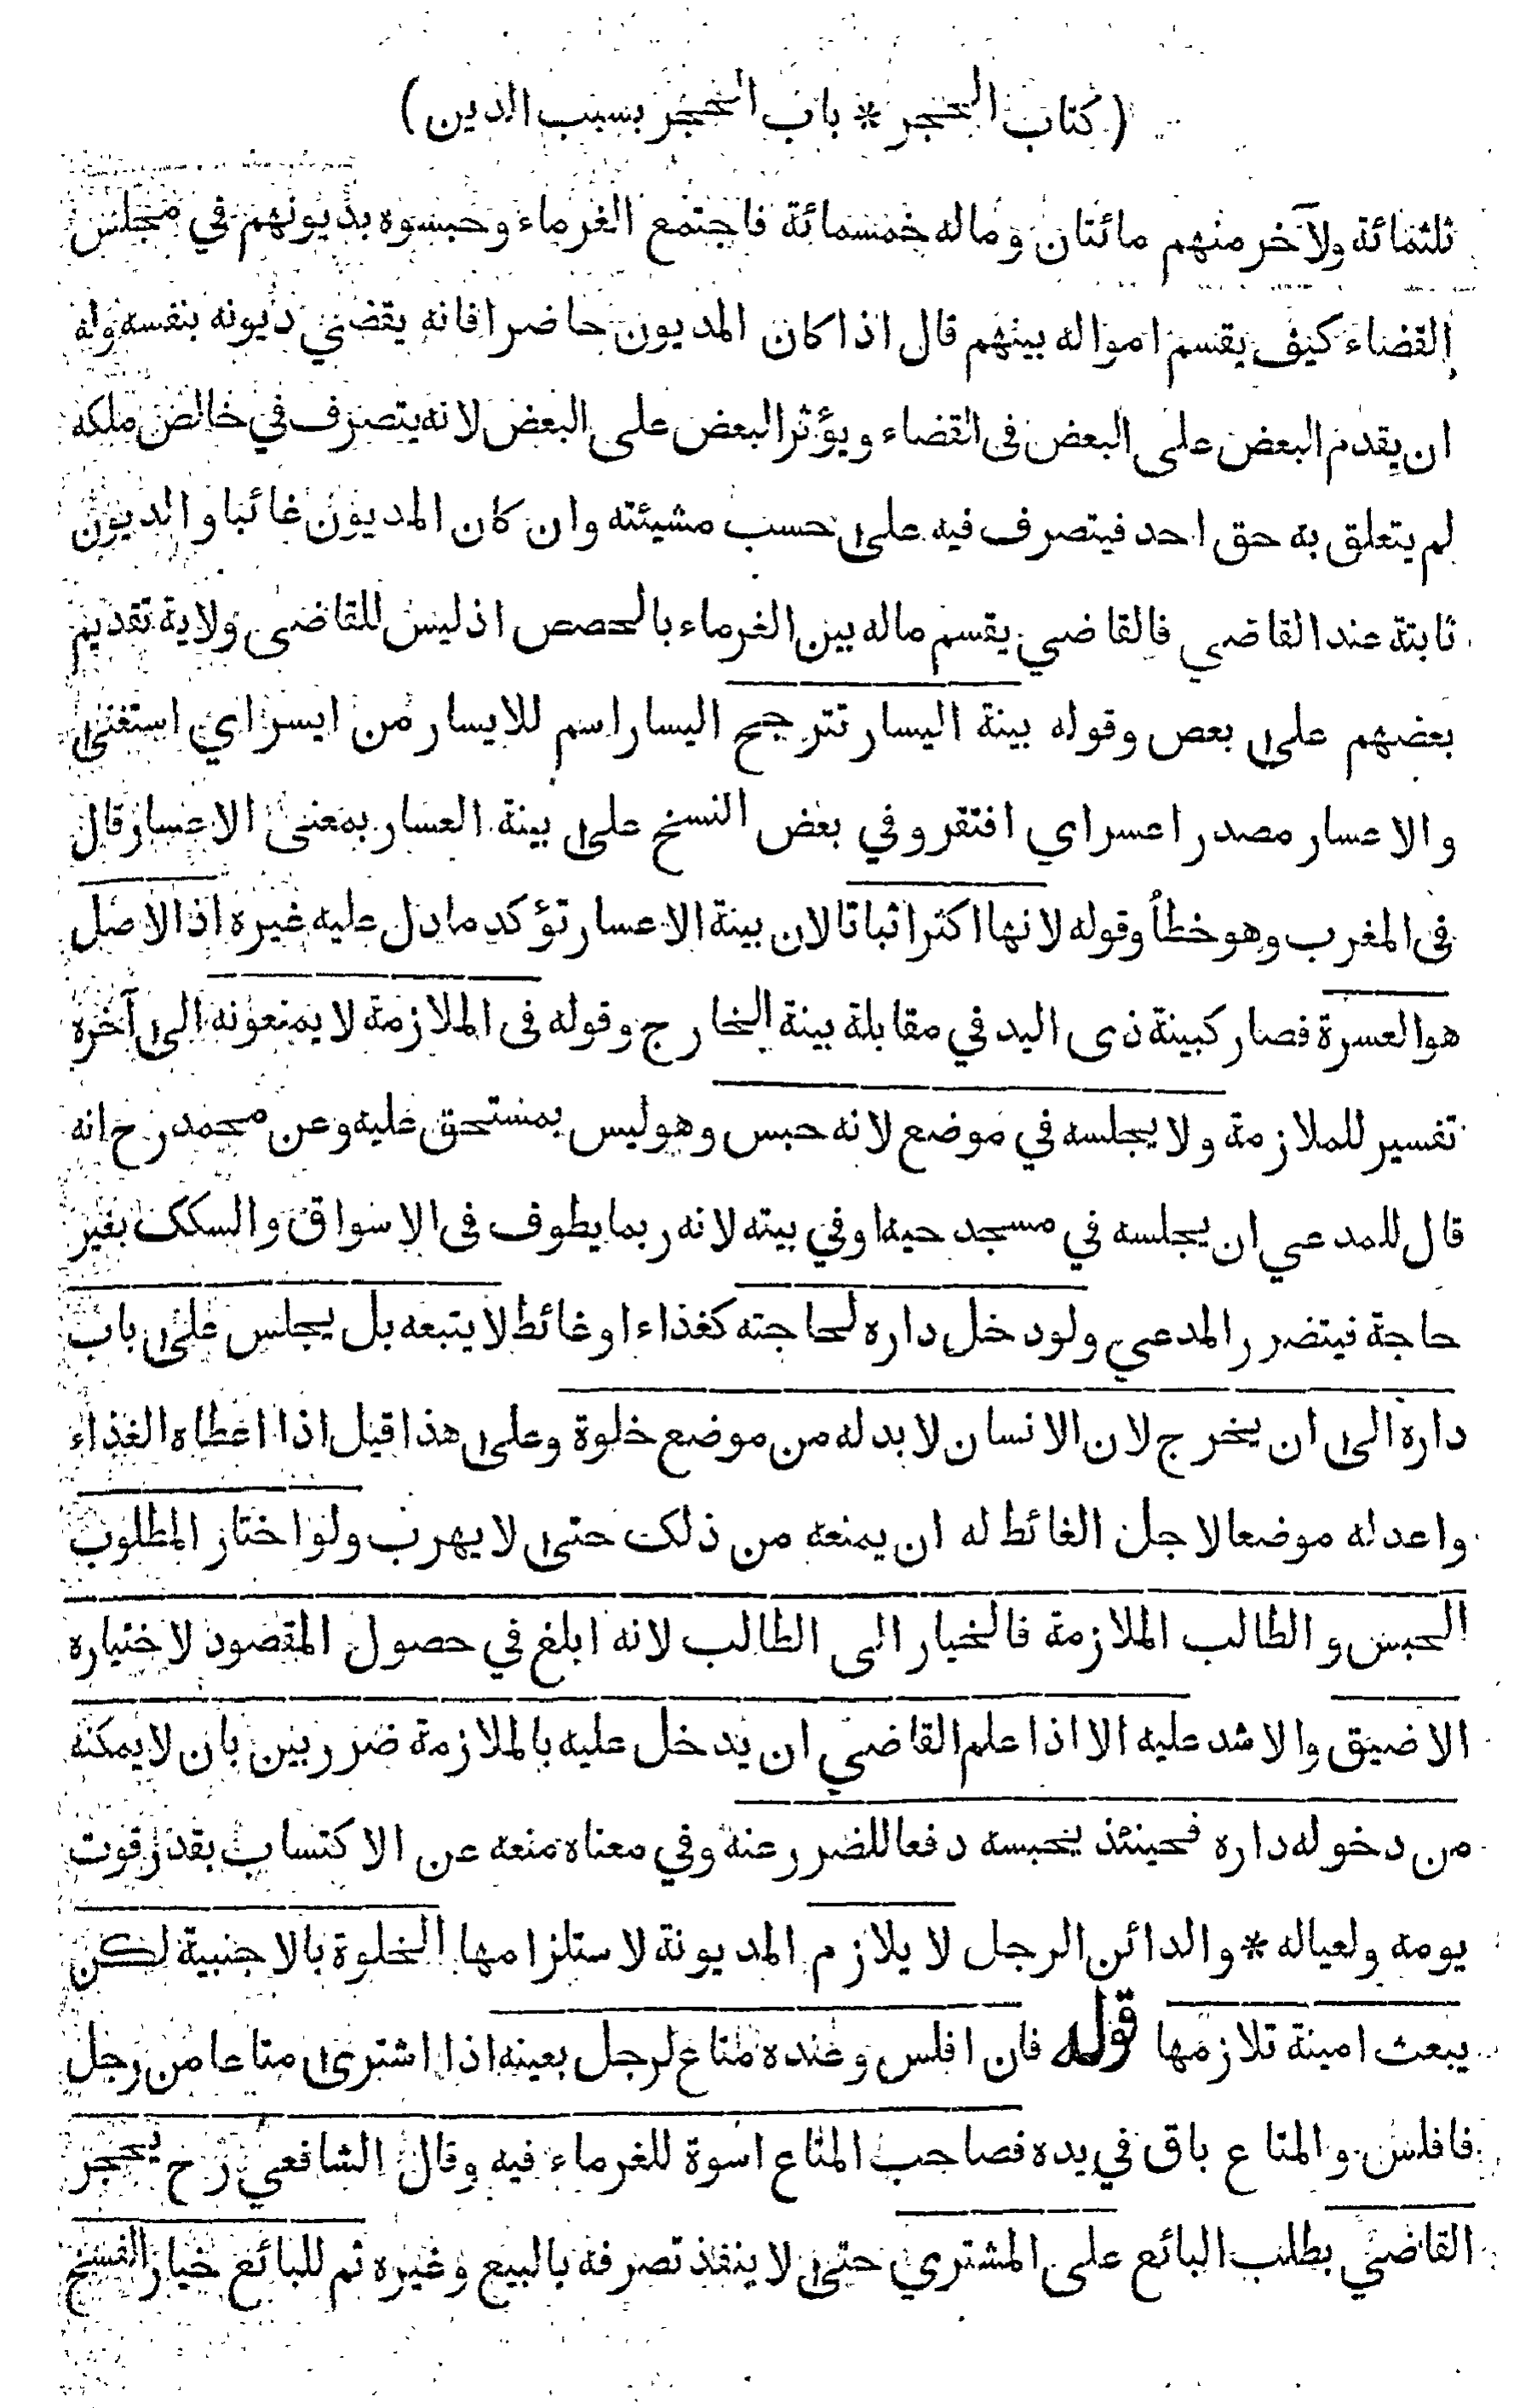 (كتاب الحجر * باب الحجر بسبب الدين)
ثلثمائة ولآخر منهم مائتان وماله خمسمائة فاجتمع الغرماء وحبسوه بديونهم في مجلس
القضاء كيف يقسم امواله بينهم قال اذا كان المديون حاضرا فانه يقضي ديونه بنفسه وله
ان يقدم البعض على البعض فى القضاء ويؤثر البعض على البعض لانه يتصرف في خالص ملكه
لم يتعلق به حق احد فيتصرف فيه على حسب مشيئته وان كان المديون غائبا والديون
ثابتة عند القاضي فالقاضي يقسم ماله بين الغرماء بالحصص اذ ليس للقاضى ولاية تقديم
بعضهم على بعص وقوله بينة اليسار تترجح اليسار اسم للايسار من ايسر اي استغنى
والاعسار مصدر اعسر اي افتقر وفي بعض النسخ على بينة العسار بمعنى الاعسار قال
فى المغرب وهو خطأ وقوله لانها اكثر اثباتا لان بينة الاعسار تؤكد ما دل عليه غيره اذ الاصل
هو العسرة فصار كبينة ذى اليد في مقابلة بينة الخارج وقوله فى الملازمة لا يمنعونه الى آخره
تفسير للملازمة ولا يجلسه في موضع لانه حبس وهو ليس بمستحق عليه وعن محمد رح انه
قال للمدعي ان يجلسه في مسجد حيه او في بيته لانه ربما يطوف فى الاسواق والسكك بغير
حاجة فيتضرر المدعي ولو دخل داره لحاجته كغذاء او غائط لا يتبعه بل يجلس على باب
داره الى ان يخرج لان الانسان لا بد له من موضع خلوة وعلى هذا قيل اذا اعطاه الغذاء
واعد له موضعا لاجل الغائط له ان يمنعه من ذلك حتى لا يهرب ولو اختار المطلوب
الحبس والطالب الملازمة فالخيار الى الطالب لانه ابلغ في حصول المقصود لاختياره
الاضيق والاشد عليه الا اذا علم القاضي ان يدخل عليه بالملازمة ضرر بين بان لا يمكنه
من دخوله داره فحينئذ يحبسه دفعا للضرر عنه وفي معناه منعه عن الاكتساب بقدر قوت
يومه ولعياله * والدائن الرجل لا يلازم المديونة لاستلزامها الخلوة بالاجنبية لكن
يبعث امينة تلازمها قوله فان افلس وعنده متاع لرجل بعينه اذا اشترى متاعا من رجل
فافلس والمتاع باق في يده فصاحب المتاع اسوة للغرماء فيه وقال الشافعي رح يحجر
القاضي بطلب البائع على المشتري حتى لا ينفذ تصرفه بالبيع وغيره ثم للبائع خيار الفسخ